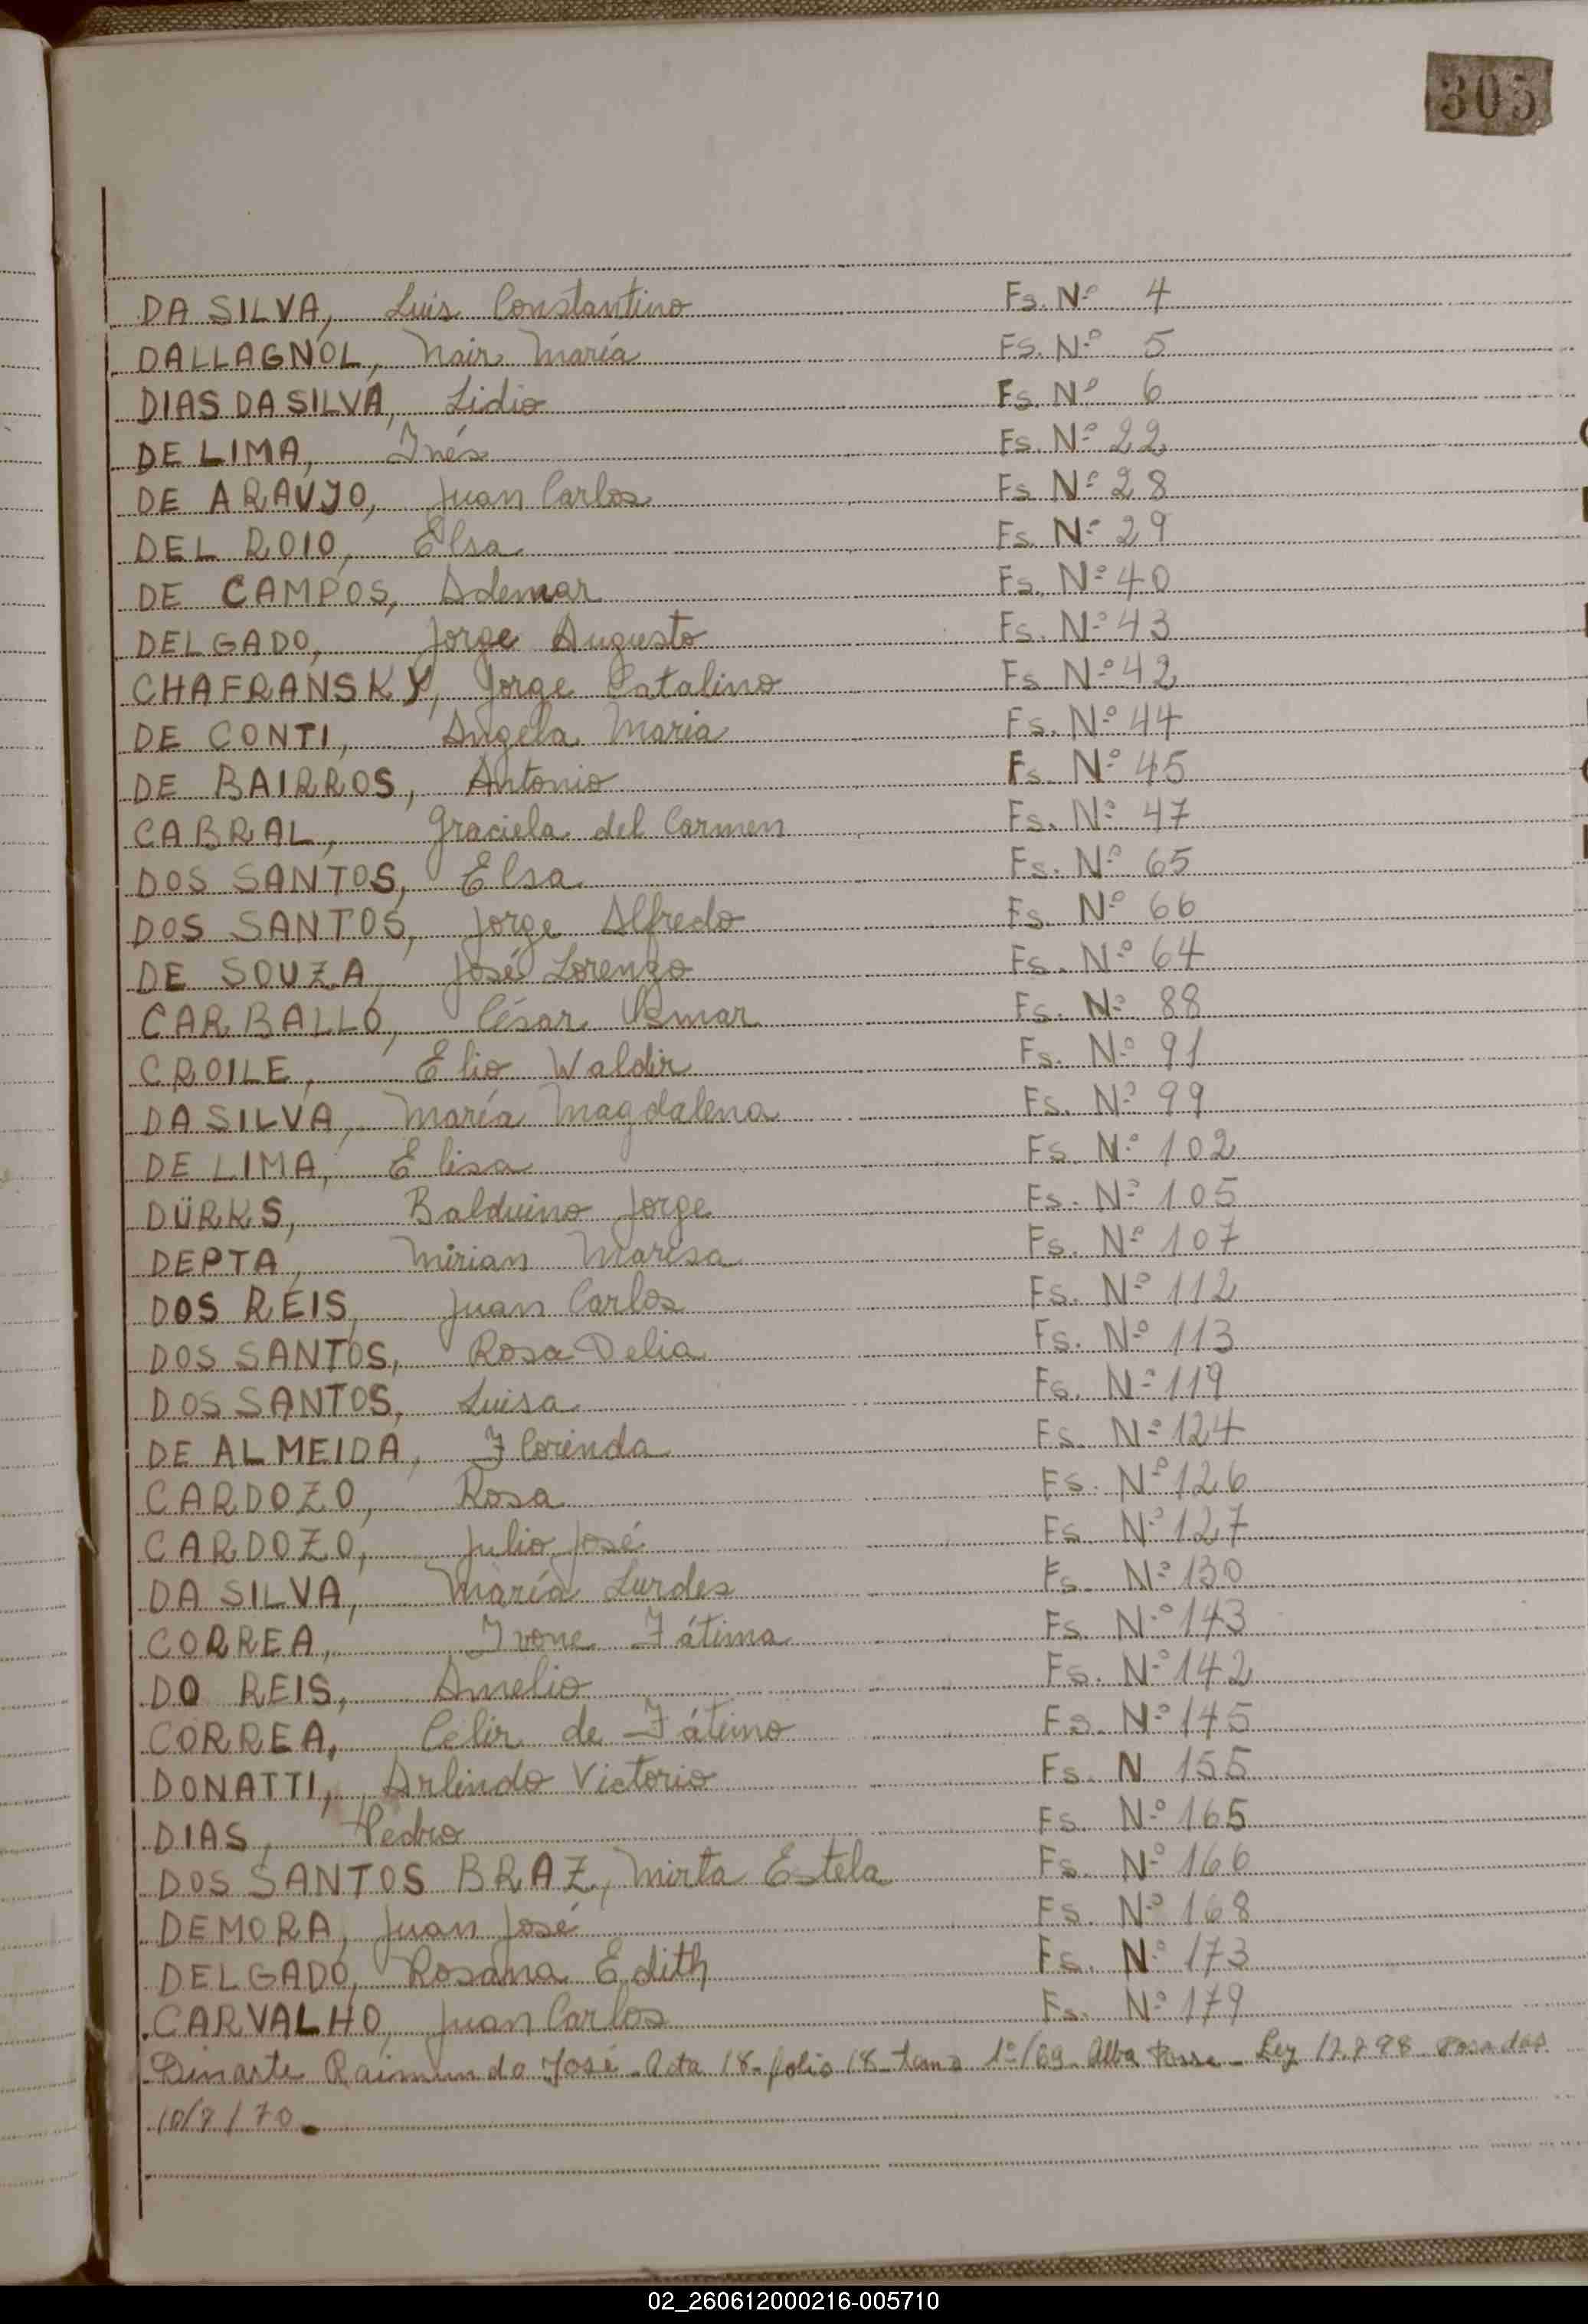 305
DA SILVA, Luis Constantino Fs. Nº 4
DALLAGNOL, Nair María Fs. Nº 5
DIAS DA SILVA, Lidio Fs. Nº 6
DE LIMA, Inés Fs. Nº 22
DE ARAUJO, Juan Carlos Fs. Nº 28
DEL ROIO, Elsa Fs. Nº 29
DE CAMPOS, Ademar Fs. Nº 40
DELGADO, Jorge Augusto Fs. Nº 43
CHAFRANSKY, Jorge Catalino Fs. Nº 42
DE CONTI, Angela Maria Fs. Nº 44
DE BAIRROS, Antonio Fs. Nº 45
CABRAL, Graciela del Carmen Fs. Nº 47
DOS SANTOS, Elsa Fs. Nº 65
DOS SANTOS, Jorge Alfredo Fs. Nº 66
DE SOUZA, José Lorenzo Fs. Nº 64
CARBALLO, César Fs. Nº 88
CROILE, Elio Waldir Fs. Nº 91
DA SILVA, María Magdalena Fs. Nº 99
DE LIMA, Elisa Fs. Nº 102
DÜRKS, Balduino Jorge Fs. Nº 105
DEPTA, Mirian Marisa Fs. Nº 107
DOS REIS, Juan Carlos Fs. Nº 112
DOS SANTOS, Rosa Delia Fs. Nº 113
DOS SANTOS, Luisa Fs. Nº 119
DE ALMEIDA, Florinda Fs. Nº 124
CARDOZO, Rosa Fs. Nº 126
CARDOZO, Julio José Fs. Nº 127
DA SILVA, María Lurdes Fs. Nº 130
CORREA, Ivone Fátima Fs. Nº 143
DO REIS, Amelio Fs. Nº 142
CORREA, Celir de Fátimo Fs. Nº 145
DONATTI, Arlindo Victorio Fs. N 155
DIAS, Pedro Fs. Nº 165
DOS SANTOS BRAZ, Mirta Estela Fs. Nº 166
DEMORA, Juan José Fs. Nº 168
DELGADO, Rosana Edith Fs. Nº 173
CARVALHO, Juan Carlos Fs. Nº 179
Dinarte Raimundo José - Acta 18 - folio 18 - tomo 1º/69 - Alba Posse - Ley Posadas
02_260612000216-005710